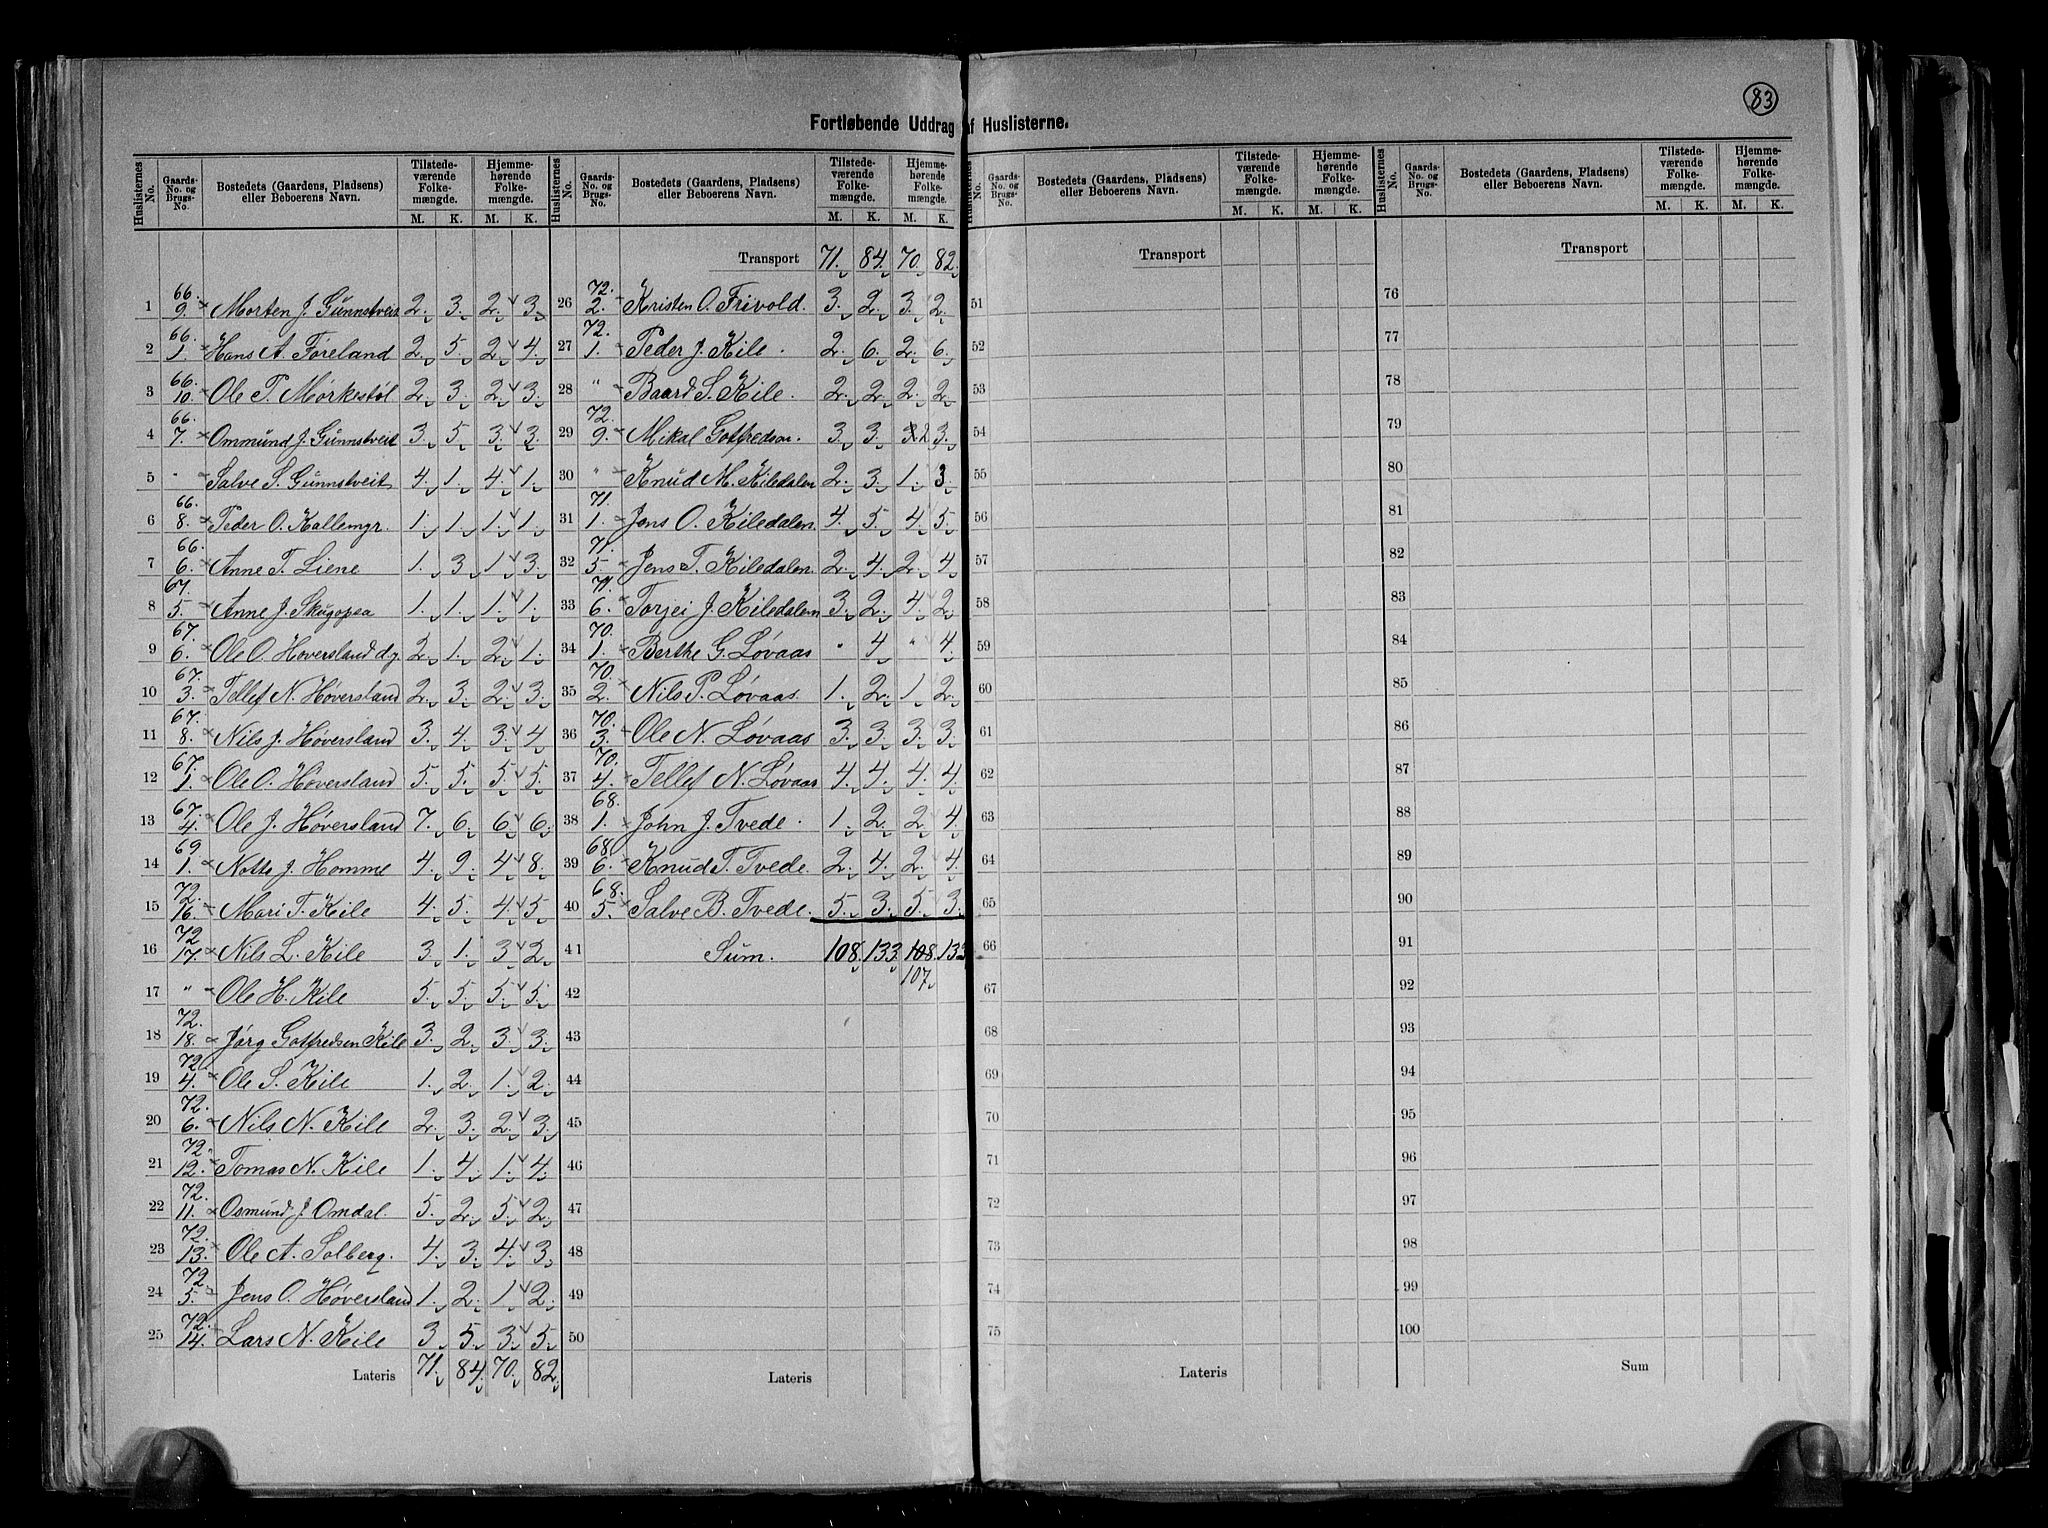 83
Fortløbende Uddrag af Huslisterne.
Huslisternes No. | Gaards-No. og Brugs-No. | Bostedets (Gaardens, Pladsens) eller Beboerens Navn. | Tilstedeværende Folkemængde. M. K. | Hjemmehørende Folkemængde. M. K.
1 66. 9. Morten J. Gunnstveit 2. 3. 2. 3.
2 66. 1. Hans A. Føreland 2. 5. 2. 4.
3 66. 10. Ole T. Mørkestøl 2. 3. 2. 3.
4 66. 7. Ommund J. Gunnstveit 3. 5. 3. 3.
5 " Salve S. Gunnstveit 4. 1. 4. 1.
6 66. 8. Peder O. Kallemgr. 1. 1. 1. 1.
7 66. 6. Anne T. Liene 1. 3. 1. 3.
8 67. 5. Anne J. 1. 1. 1. 1.
9 67. 6. Ole O. Høversland d.y. 2. 1. 2. 1.
10 67. 3. Tellef N. Høversland 2. 3. 2. 3.
11 67. 8. Nils J. Høversland 3. 4. 3. 4
12 67. 1. Ole O. Høversland 5. 5. 5. 5.
13 67. 4. Ole J. Høversland 7. 6. 6. 6.
14 69 1. Notto J. Homme 4. 9. 4 8.
15 72. 16. Mari T. Kile 4. 5. 4. 5.
16 72 17. Nils L. Kile 3. 1. 3 2.
17 " Ole H. Kile 5. 5. 5. 5.
18 72. 18. Jørg Gotfredsen Kile 3. 2. 3. 3.
19 72. 4. Ole S. Kile 1. 2. 1. 2.
20 72. 6. Nils N. Kile 2. 3. 2. 3.
21 72. 12. Tomas N. Kile 1. 4. 1. 4.
22 72. 11. Osmund J. Omdal. 5. 2. 5. 2.
23 72. 13. Ole A. Solberg. 4. 3. 4. 3.
24 72 5. Jens O. Høversland 1. 2. 1 2.
25 72. 14. Lars N. Kile 3 5. 3. 5.
Lateris 71. 84. 70. 82.
Huslisternes No. | Gaards-No. og Brugs-No. | Bostedets (Gaardens, Pladsens) eller Beboerens Navn. | Tilstedeværende Folkemængde. M. K. | Hjemmehørende Folkemængde. M. K.
Transport 71. 84. 70. 82.
26 72. 2. Kristen O. Frivold. 3. 2. 3. 2.
27 72. 1. Peder J. Kile. 2. 6. 2. 6.
28 " Baard S. Kile. 2. 2. 2. 2.
29 72. 9. Mikal Gotfredsen. 3. 3. 3. 2 3.
30 " Knud M. Kiledalen 2. 3. 1. 3.
31 71. 1. Jens O. Kiledalen. 4. 5. 4. 5.
32 71. 5. Jens T. Kiledalen. 2. 4. 2. 4
33 71. 6. Torjei J. Kiledalen 3. 2. 4. 2.
34 70. 1. Berthe G. Løvaas " 4 " 4.
35 70. 2. Nils P. Løvaas. 1. 2. 1 2.
36 70. 3. Ole N. Løvaas 3. 3. 3. 3.
37 70. 4. Tellef N. Løvaas 4. 4. 4. 4.
38 68. 1. John J. Tvede. 1. 2. 2. 4.
39 68. 6. Knud T. Tvede. 2. 4. 2. 4.
40 68. 5. Salve B. Tvede. 5. 3. 5. 3.
41 Sum. 108. 133. 108. 133
107.
42
43
44
45
46
47
48
49
50
Lateris
Huslisternes No. | Gaards-No. og Brugs-No. | Bostedets (Gaardens, Pladsens) eller Beboerens Navn. | Tilstedeværende Folkemængde. M. K. | Hjemmehørende Folkemængde. M. K.
Transport
51
52
53
54
55
56
57
58
59
60
61
62
63
64
65
66
67
68
69
70
71
72
73
74
75
Lateris
Huslisternes No. | Gaards-No. og Brugs-No. | Bostedets (Gaardens, Pladsens) eller Beboerens Navn. | Tilstedeværende Folkemængde. M. K. | Hjemmehørende Folkemængde. M. K.
Transport
76
77
78
79
80
81
82
83
84
85
86
87
88
89
90
91
92
93
94
95
96
97
98
99
100
Sum